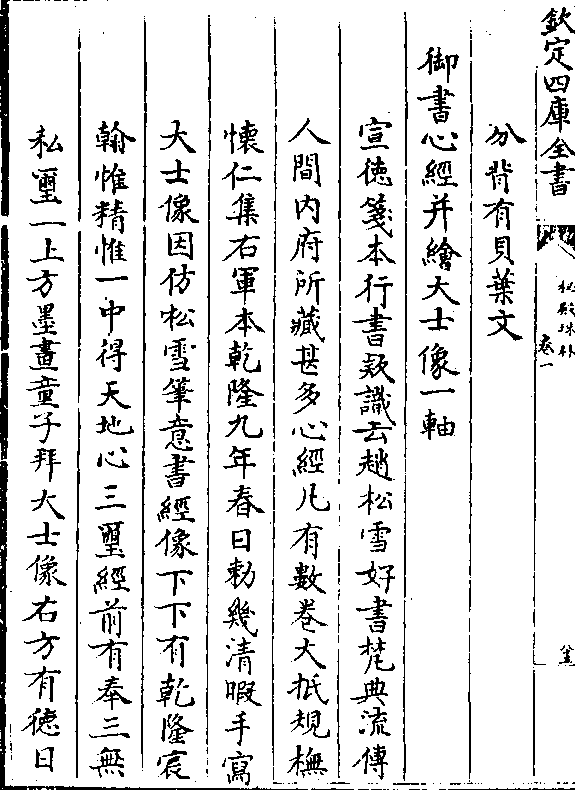 欽定四庫全書
秘殿珠林
卷一
分背有貝葉文
御書心經并繪大士像一軸
宣徳箋本行書欵識云趙松雪好書梵典流傳
人間内府所藏甚多心經凡有數卷大抵規橅
懐仁集右軍本乾隆九年春日勅幾清暇手寫
大士像因仿松雪筆意書經像下下有乾隆宸
翰惟精惟一中得天地心三璽經前有奉三無
私璽一上方墨畫童子拜大士像右方有徳日